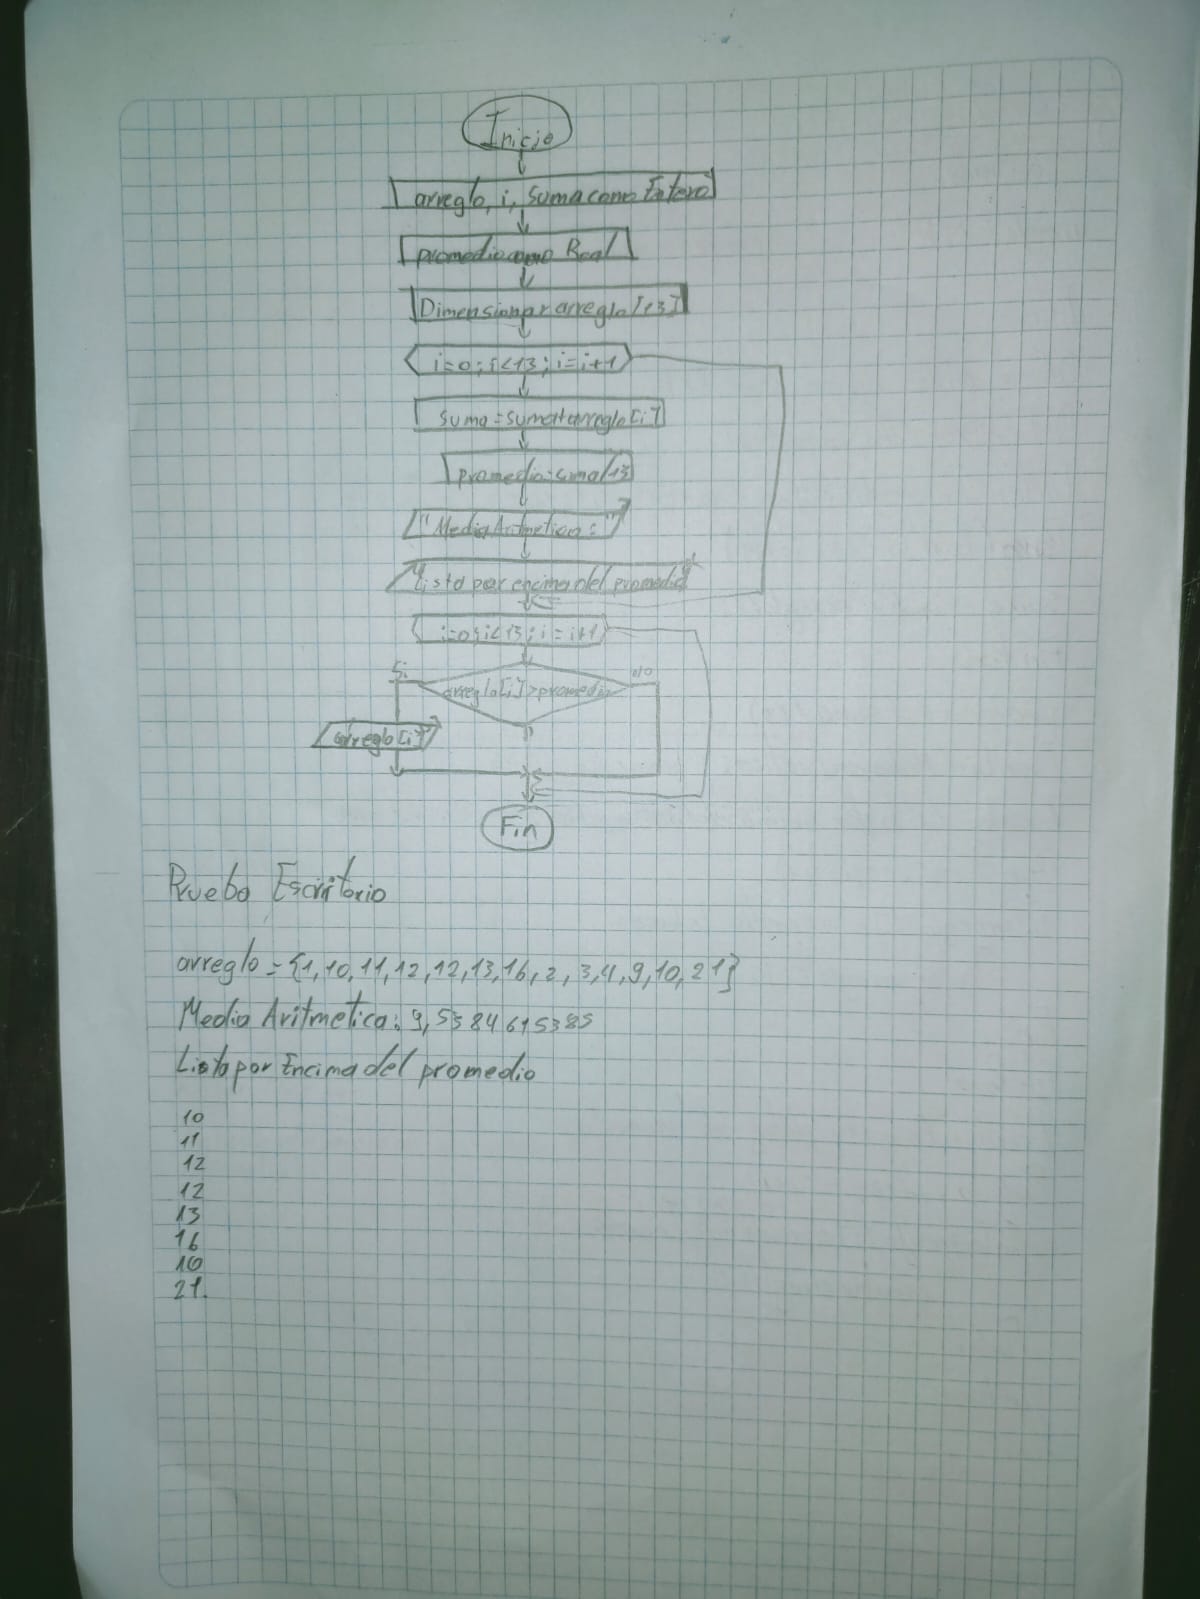 Inicio
arreglo, i, Suma como Entero
promedio como Real
Dimensionar arreglo[13]
i=0; i<13; i=i+1
Suma=suma+arreglo[i]
promedio=suma/13
"Media Aritmetica: "
"Lista por encima del promedio"
i=0; i<13; i=i+1
Si
arreglo[i]>promedio
no
arreglo[i]
Fin
Prueba Escritorio
arreglo={1,10,11,12,12,13,16,2,3,4,9,10,21}
Media Aritmetica: 9,5384615385
Lista por Encima del promedio
10
11
12
12
13
16
10
21.